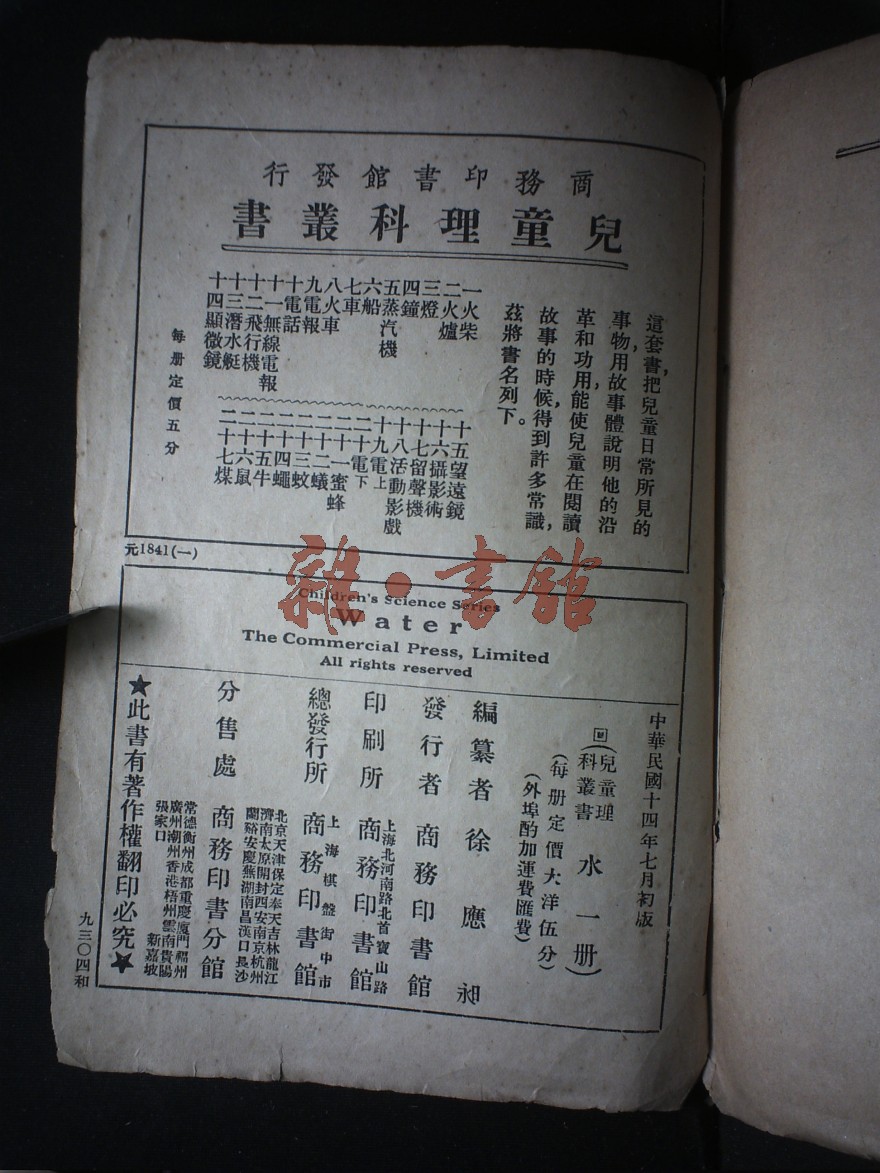 商務印書館發行
兒童理科叢書
這套書,把兒童日常所見的
事物,用故事體說明他的沿
革和功用,能使兒童在閱讀
故事的時候,得到許多常識,
茲將書名列下。
一火柴
二火爐
三燈
四鐘
五蒸汽機
六船
七車
八火車
九電報
十電話
十一無線電報
十二飛行機
十三潛水艇
十四顯微鏡
十五望遠鏡
十六攝影術
十七留聲機
十八活動影戲
十九電上
二十電下
二十一蜜蜂
二十二蟻
二十三蚊
二十四蠅
二十五牛
二十六鼠
二十七煤
每册定價五分
元1841(一)
雜·書館
Children's Science Series
Water
The Commercial Press, Limited
All rights reserved
中華民國十四年七月初版
(兒童理科叢書 水 一册)
(每册定價大洋伍分)
(外埠酌加運費匯費)
編纂者 徐應昶
發行者 商務印書館
上海北河南路北首寶山路
印刷所 商務印書館
上海棋盤街中市
總發行所 商務印書館
北京天津保定奉天吉林龍江
濟南太原開封西安南京杭州
蘭谿安慶蕪湖南昌漢口長沙
分售處 商務印書分館
常德衡州成都重慶廈門福州
廣州潮州香港梧州雲南貴陽
張家口 新嘉坡
★此書有著作權翻印必究★
九三〇四和